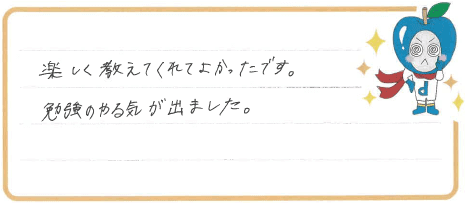 楽しく教えてくれてよかったです。
勉強のやる気が出ました。
d